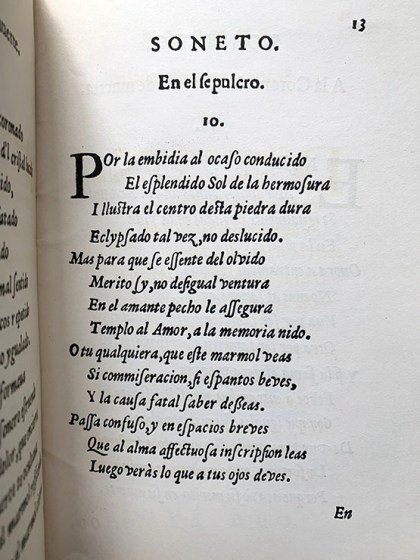 13
SONETO.
En el ſepulcro.
10.
POr la embidia al ocaſo conducido
El eſplendido Sol de la hermoſura
Illuſtra el centro deſta piedra dura
Eclypſado tal vez, no deslucido.
Mas para que ſe eſſente del olvido
Merito ſy, no deſigual ventura
En el amante pecho le aſſegura
Templo al Amor, a la memoria nido.
O tu qualquiera, que eſte marmol veas
Si commiſeracion, ſi eſpantos beves,
Y la cauſa fatal ſaber deſeas.
Paſſa confuſo, y en eſpacios breves
Que al alma affectuoſa inſcripſion leas
Luego veràs lo que a tus ojos deves.
En